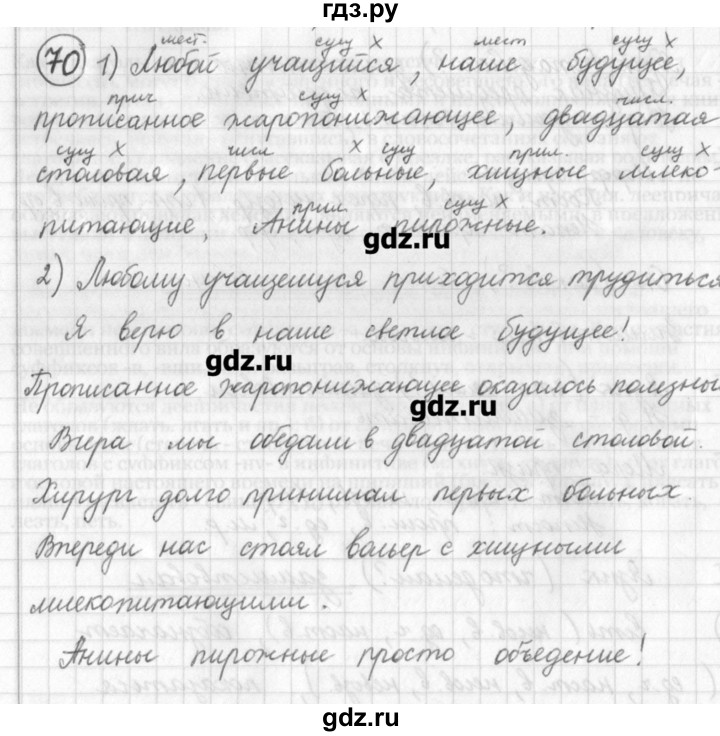 гдз.ру
70 1) мест. сущ X мест сущ X
Любой учащийся, наше будущее,
прич сущ X числ.
прописанное жаропонижающее, двадцатая
сущ X числ X сущ прил. сущ X
столовая, первые больные, хищные млеко-
прил сущ X
питающие, Анины пирожные.
gdz.ru
2) Любому учащемуся приходится трудиться
Я верю в наше светлое будущее!
gdz.ru
Прописанное жаропонижающее оказалось полезны
gdz.ru
Вчера мы обедали в двадцатой столовой.
Хирург долго принимал первых больных.
Впереди нас стоял вольер с хищными
млекопитающими.
Анины пирожные просто объедение!
gdz.ru